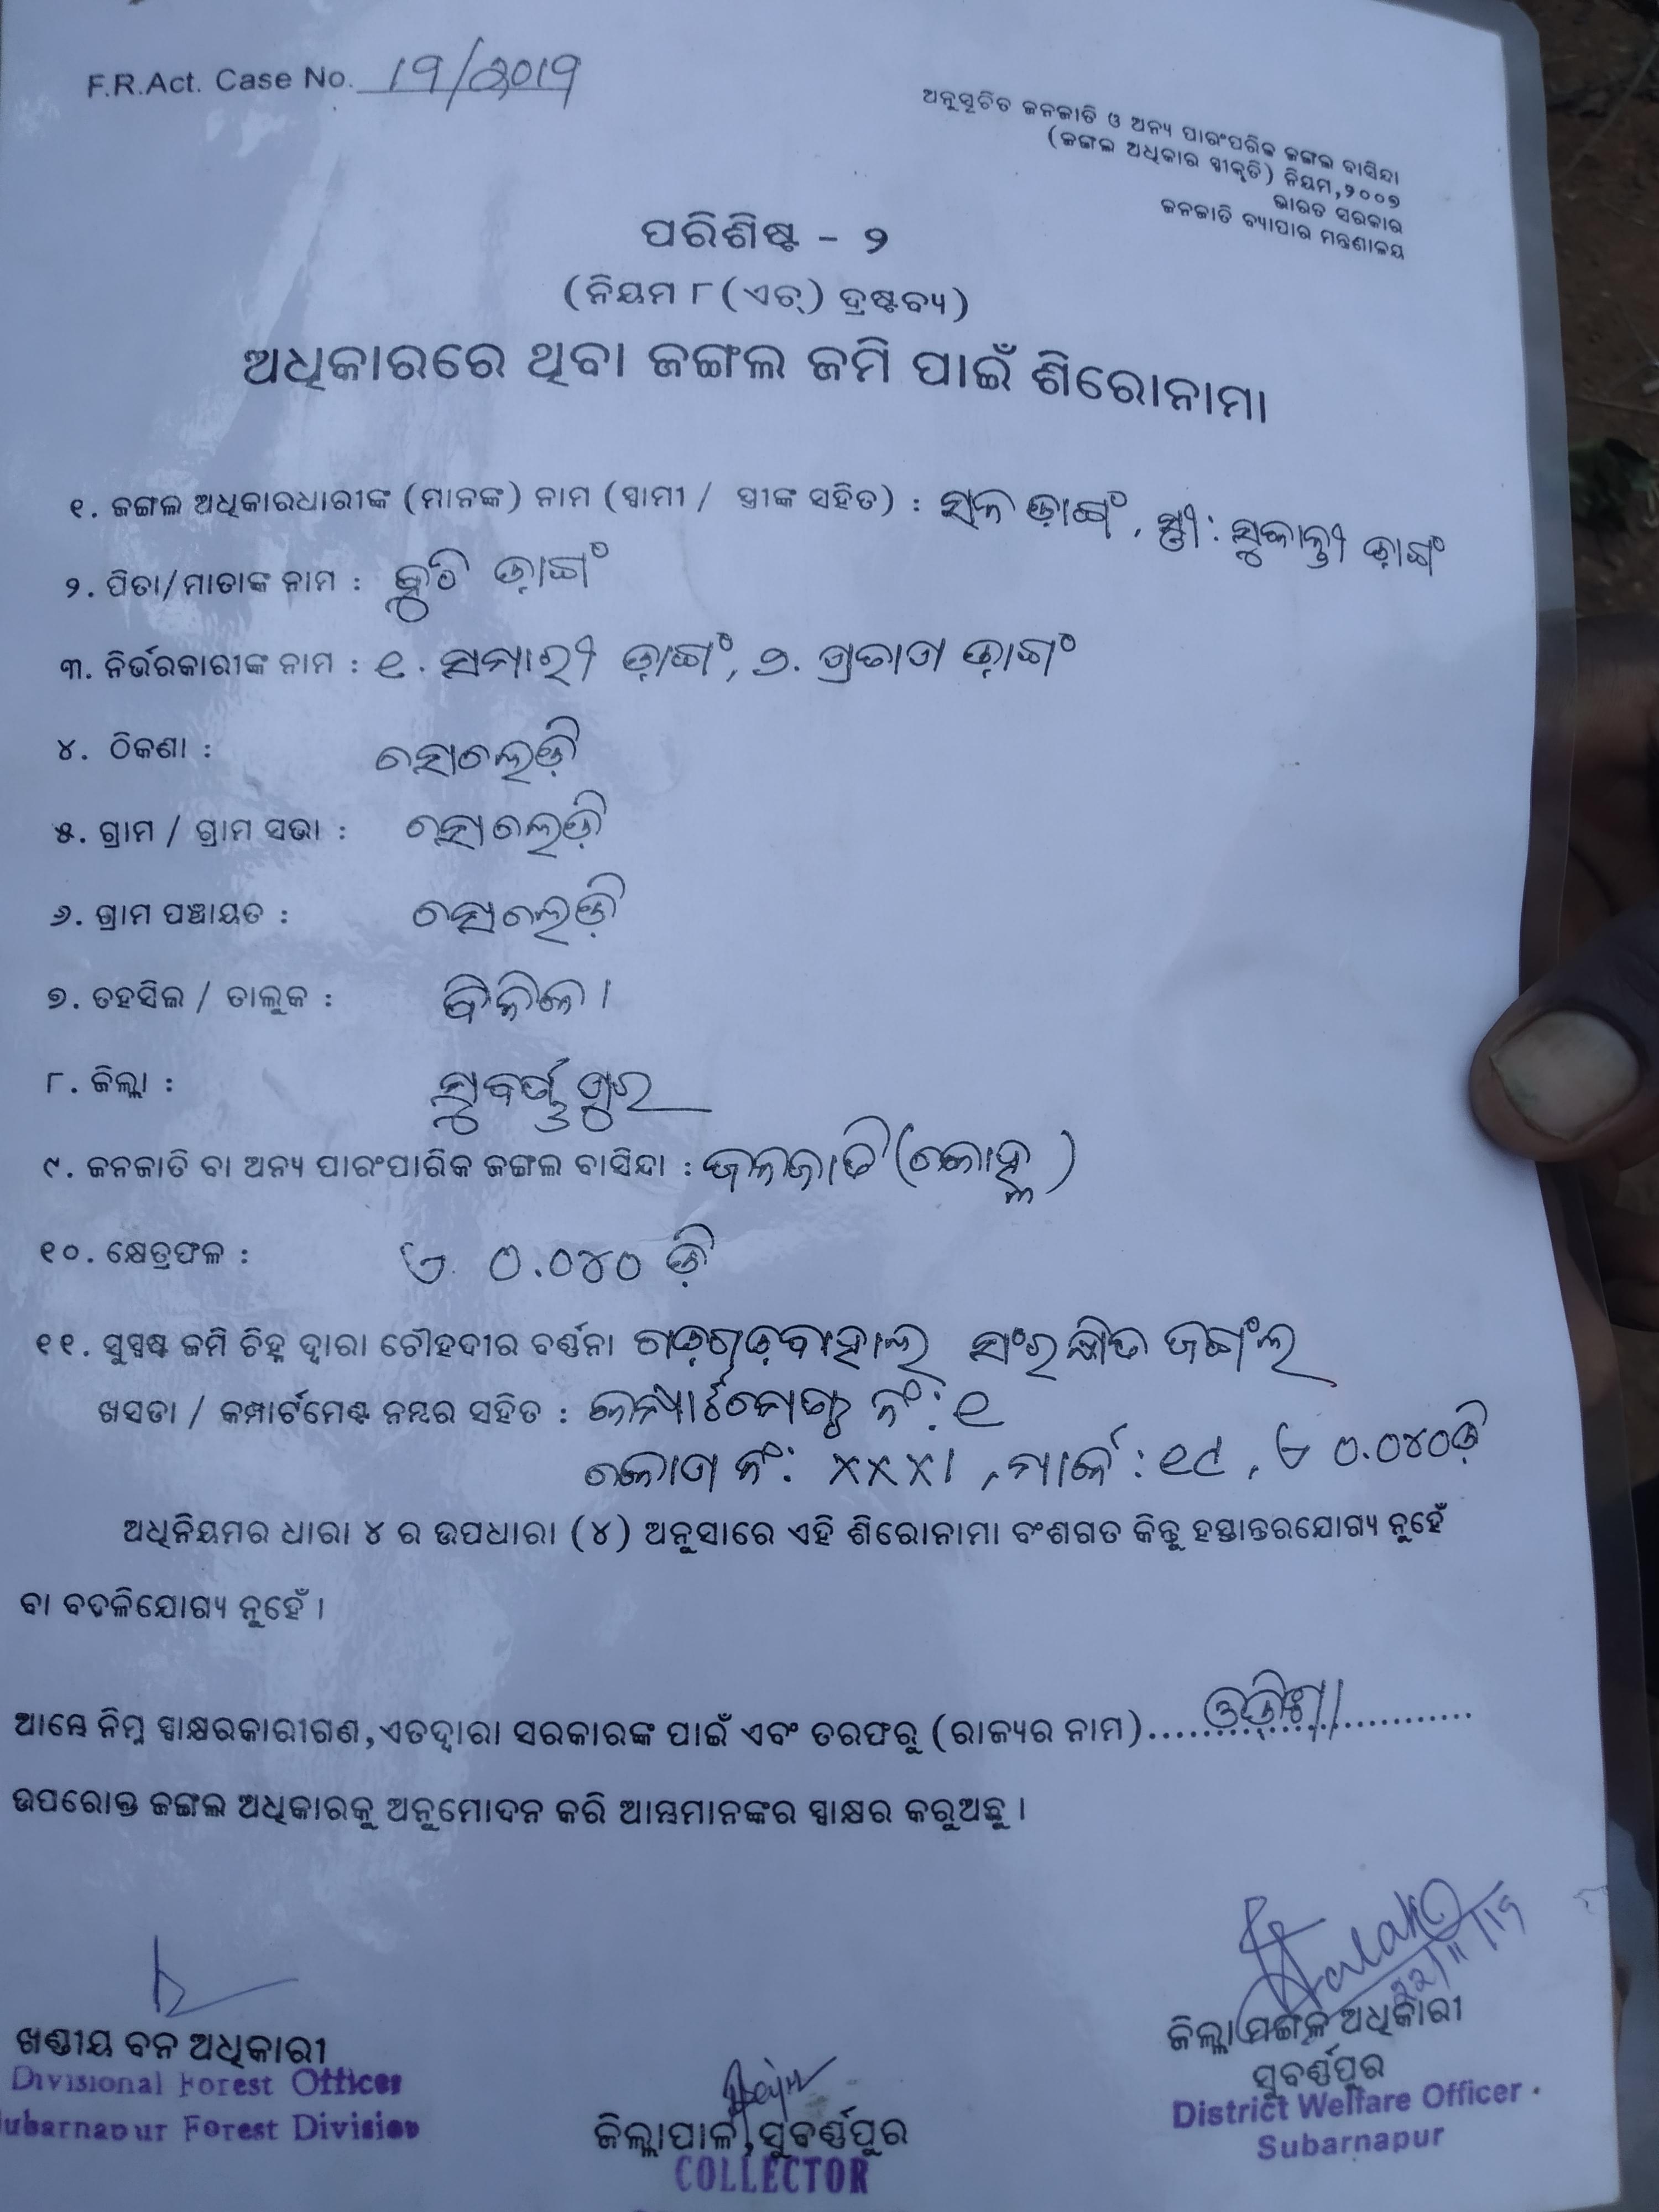 F.R.Act. Case No. 17/2017
ଅନୁସୂଚିତ ଜନଜାତି ଓ ଅନ୍ୟ ପାରଂପରିକ ଜଙ୍ଗଲ ବାସିନ୍ଦା
(ଜଙ୍ଗଲ ଅଧିକାର ସ୍ୱୀକୃତି) ନିୟମ,୨୦୦୭
ଭାରତ ସରକାର
ଜନଜାତି ବ୍ୟାପାର ମନ୍ତ୍ରଣାଳୟ
ପରିଶିଷ୍ଟ - ୨
(ନିୟମ ୮ (ଏଚ୍) ଦ୍ରଷ୍ଟବ୍ୟ)
ଅଧିକାରରେ ଥିବା ଜଙ୍ଗଲ ଜମି ପାଇଁ ଶିରୋନାମା
୧. ଜଙ୍ଗଲ ଅଧିକାରଧାରୀଙ୍କ (ମାନଙ୍କ) ନାମ (ସ୍ୱାମୀ / ସ୍ତ୍ରୀଙ୍କ ସହିତ) :
୨. ପିତା/ମାତାଙ୍କ ନାମ :
୩. ନିର୍ଭରକାରୀଙ୍କ ନାମ : ୧. ୨. ପ୍ରତାପ
୪. ଠିକଣା : ସେଲେଡ଼ି
୫. ଗ୍ରାମ / ଗ୍ରାମ ସଭା : ସେଲେଡ଼ି
୬. ଗ୍ରାମ ପଞ୍ଚାୟତ : ସେଲେଡ଼ି
୭. ତହସିଲ / ତାଲୁକ : ବିନିକା
୮. ଜିଲ୍ଲା : ସୁବର୍ଣ୍ଣପୁର
୯. ଜନଜାତି ବା ଅନ୍ୟ ପାରଂପାରିକ ଜଙ୍ଗଲ ବାସିନ୍ଦା : ଜନଜାତି (କୋହ୍ଲ)
୧୦. କ୍ଷେତ୍ରଫଳ : ଏ ୦.୦୪୦ ଡ଼ି
୧୧. ସୁସ୍ପଷ୍ଟ ଜମି ଚିହ୍ନ ଦ୍ୱାରା ଚୌହଦୀର ବର୍ଣ୍ଣନା ଗଡ଼ଗଡ଼ବାହାଲ ସଂରକ୍ଷିତ ଜଙ୍ଗଲ
ଖସଡା / କମ୍ପାର୍ଟମେଣ୍ଟ ନମ୍ବର ସହିତ : କମ୍ପାର୍ଟମେଣ୍ଟ ନଂ: ୧
ନଂ: XXXI, ମାର୍କ : ୧୯, ଏ ୦.୦୪୦ଡ଼ି
ଅଧିନିୟମର ଧାରା ୪ ର ଉପଧାରା (୪) ଅନୁସାରେ ଏହି ଶିରୋନାମା ବଂଶଗତ କିନ୍ତୁ ହସ୍ତାନ୍ତରଯୋଗ୍ୟ ନୁହେଁ
ବା ବଦଳିଯୋଗ୍ୟ ନୁହେଁ ।
ଆମ୍ଭେ ନିମ୍ନ ସ୍ୱାକ୍ଷରକାରୀଗଣ,ଏତଦ୍ୱାରା ସରକାରଙ୍କ ପାଇଁ ଏବଂ ତରଫରୁ (ରାଜ୍ୟର ନାମ)....ଓଡିଶା....
ଉପରୋକ୍ତ ଜଙ୍ଗଲ ଅଧିକାରକୁ ଅନୁମୋଦନ କରି ଆମ୍ଭମାନଙ୍କର ସ୍ୱାକ୍ଷର କରୁଅଛୁ ।
22/11/17
ଖଣ୍ଡୀୟ ବନ ଅଧିକାରୀ
Divisional Forest Officer
Subarnapur Forest Division
ଜିଲ୍ଲାପାଳ,ସୁବର୍ଣ୍ଣପୁର
COLLECTOR
ଜିଲ୍ଲା ମଙ୍ଗଳ ଅଧିକାରୀ
ସୁବର୍ଣ୍ଣପୁର
District Welfare Officer
Subarnapur